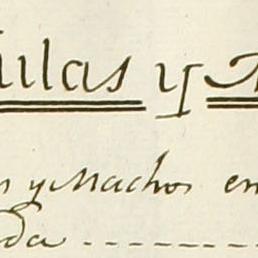 ulas y
y Machos en
da